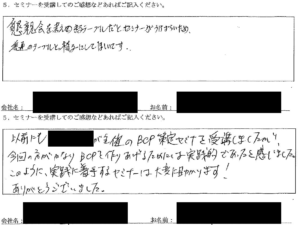 5．セミナーを受講してのご感想などあればご記入ください。
懇親会を兼めの丸テーブルだとセミナーがうけづらいため、
普通のテーブルと椅子にしてほしいです。
会社名： お名前：
5．セミナーを受講してのご感想などあればご記入ください。
以前にも が主催のBCP策定セミナを受講しましたが、
今回の方がかなりBCPを作りあげるためには実践的であると感じました。
このように、実践に着手するセミナーは大変に助かります！
ありがとうございました。
会社名： お名前：